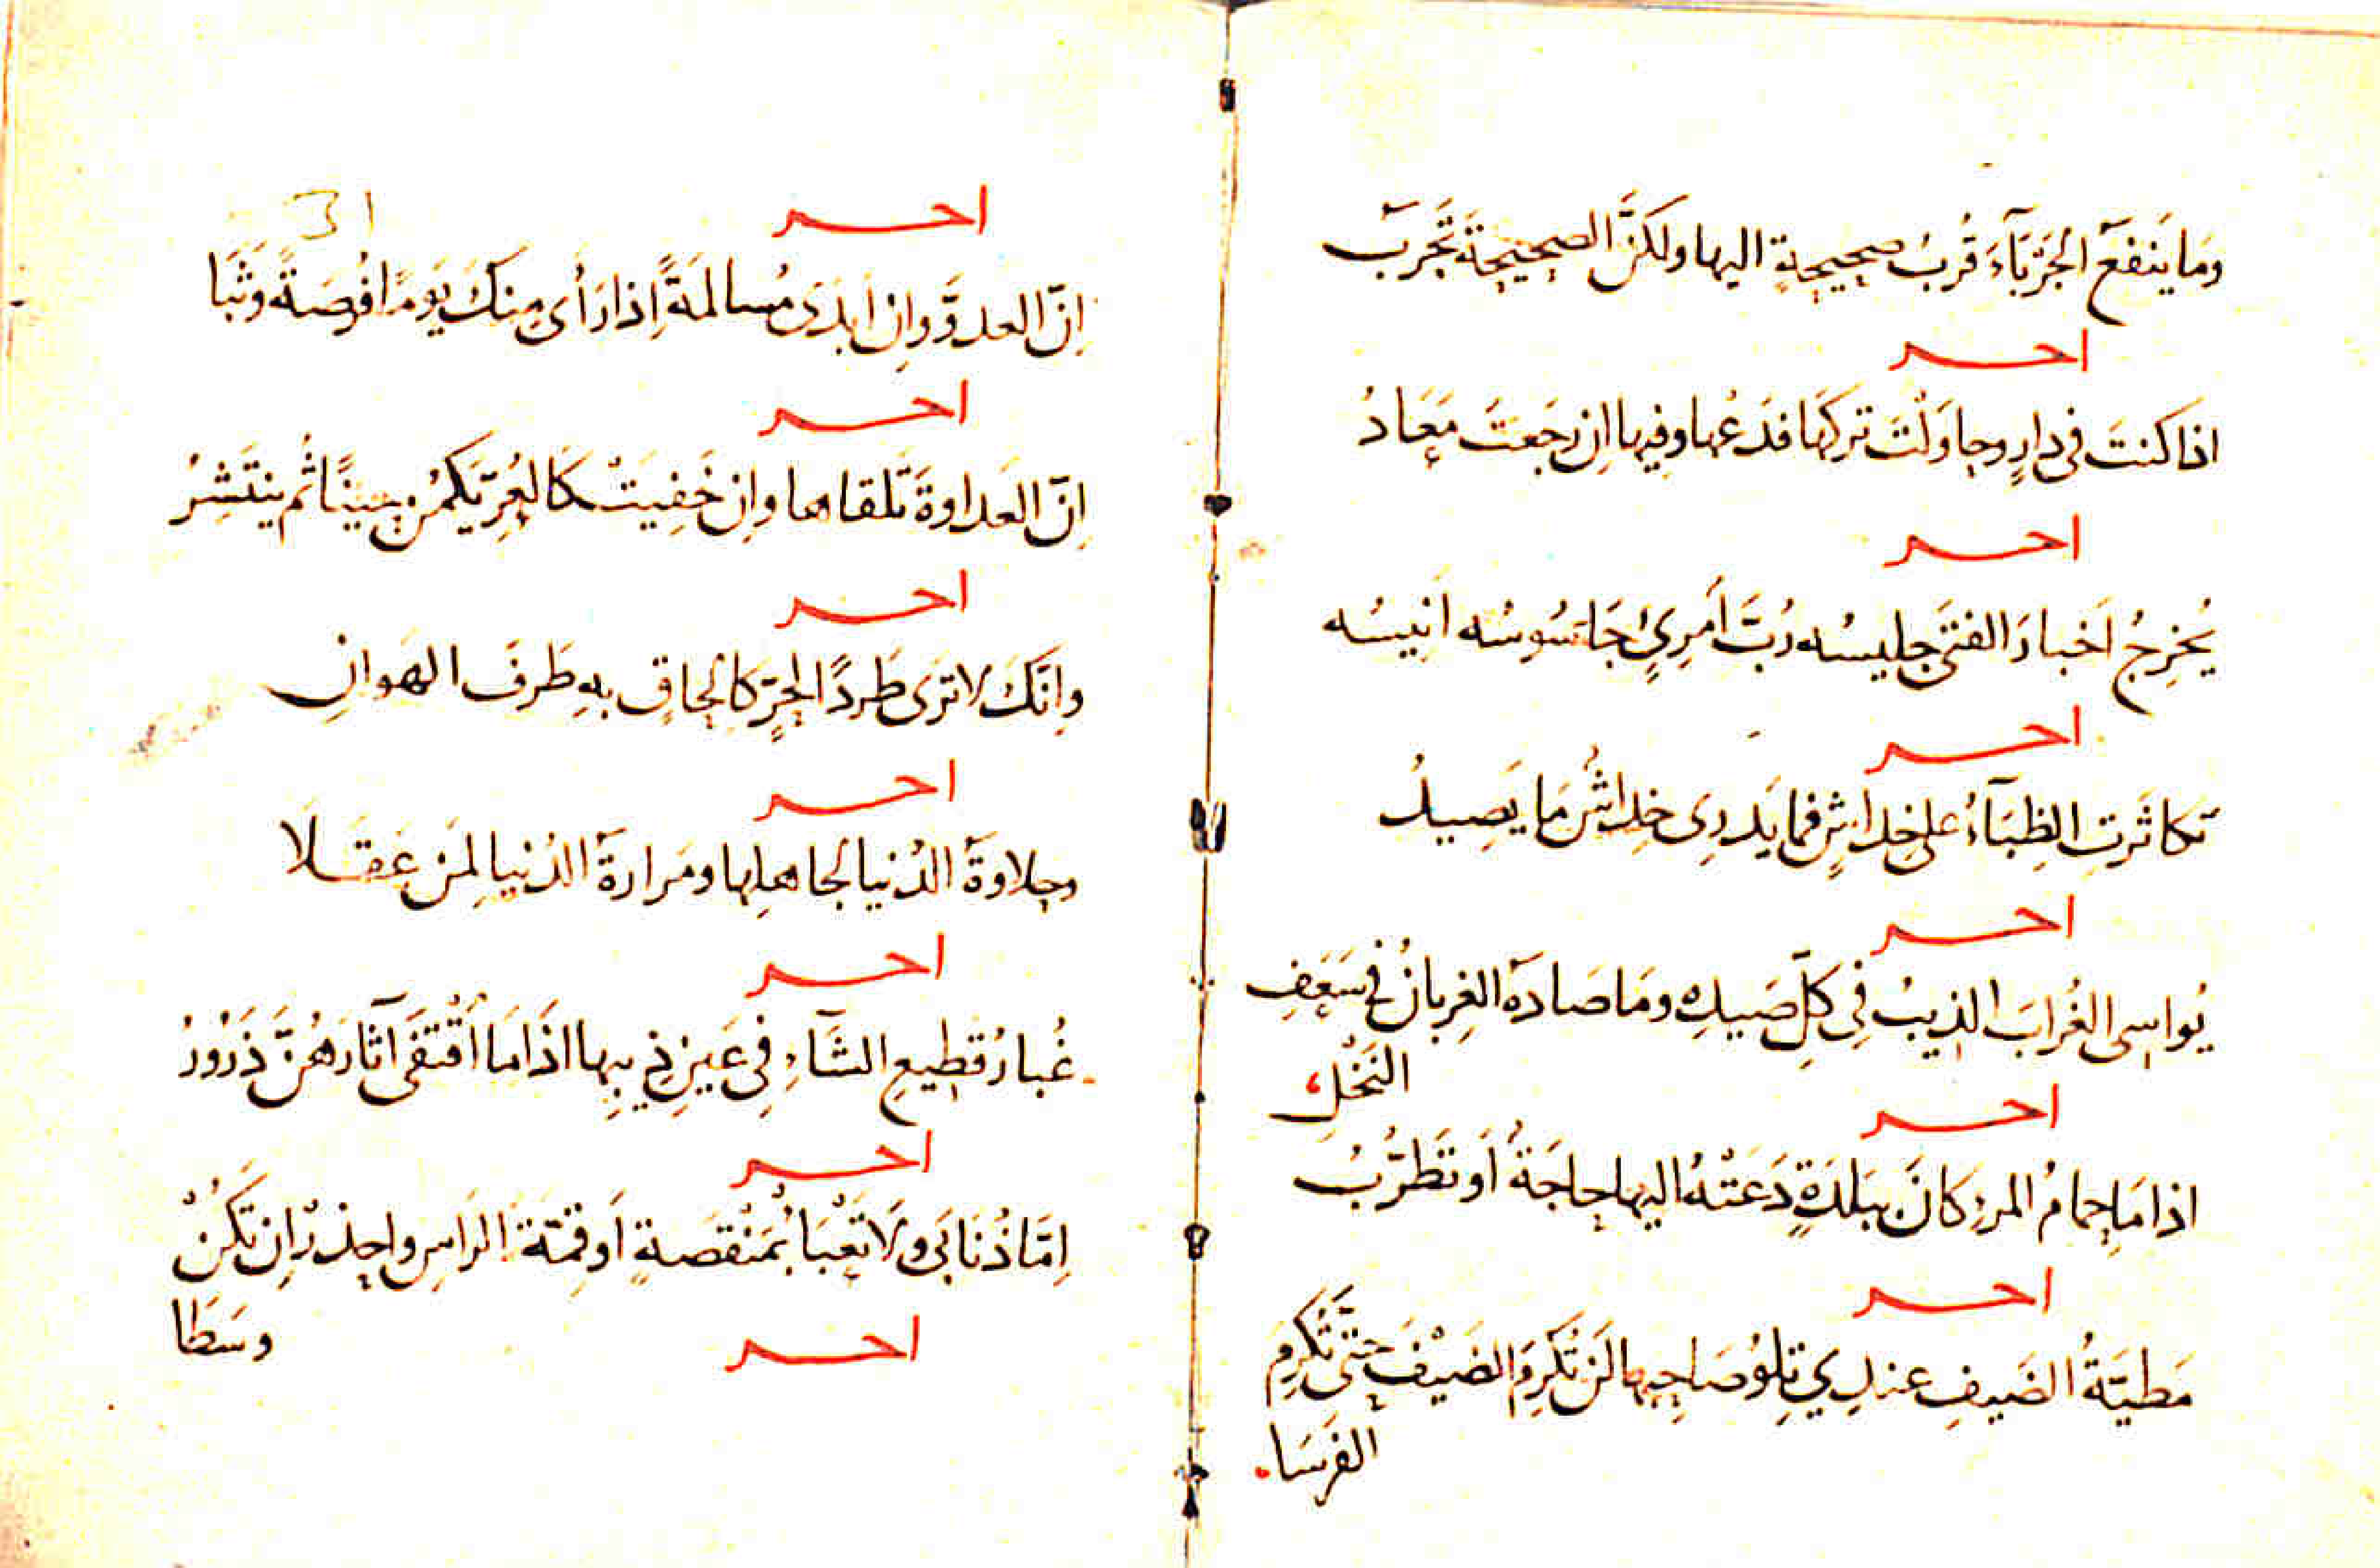 وَمَا يَنفَعُ الجَرْبَآءَ قُربُ صحيحةٍ اليها ولكنَّ الصحيحةَ تَجْرَبُ
احر
اذا كنتَ فى دارٍ وحاوَلْتَ تركَهَا فدَعْها وفيها اِن رَجَعتَ مَعَادُ
احر
يُخرِجُ اَخبارَ الفتَى جليسُه رُبَّ اَمرِئٍ جَاسُوسُه اَنيسُه
احر
تكاثَرتِ الظِبَآءُ على خِداشٍ فما يَدرِى خِداشُ مَا يَصِيدُ
احر
يُواسِى الغُرابَ الذيبُ فِى كلِّ صَيدِهِ ومَا صَادَهُ الغِربانُ فى سَعَفِ
النَخْلِ
احر
اذا مَا حِمامُ المرءِ كانَ ببَلدَةٍ دَعَتْهُ اليها حاجَةٌ اَو تَطَرُّبُ
احر
مَطيَّةُ الضَيفِ عندِي تِلوُ صَاحِبِها لَن تُكرِمَ الضَيْفَ حتَّى تُكرِمِ
الفَرَسَا
31
احر
اِنَّ العدوَّ وان اَبدَى مُسالمَةً اِذا رَأى مِنكَ يَومًا فُرصَةً وَثَبَا
احر
اِنَّ العَداوةَ تَلقاها واِن خَفِيَتْ كَالعُرِّ يَكمُن حينًا ثُم ينتَشِرُ
احر
وانَّكَ لا تَرَى طَردًا لِحُرٍّ كَاِلحاقٍ بهِ طَرفَ الهَوانِ
احر
وحلاوَةُ الدُنيا لجاهلِها ومَرارةُ الدُنيا لِمَن عَقَلا
احر
غُبارُ قَطيعِ الشَّآءِ فِى عَينِ ذِيبِها اذَا مَا اَقْتفَى آثارَهُنَّ ذَرُورُ
احر
اِمَّا ذُنَابَى ولَا تَعْبَأ بمَنْقَصةٍ اَو قمَّةَ الرَاسِ واحذرْ اِن تكُنْ
وسَطَا
احر